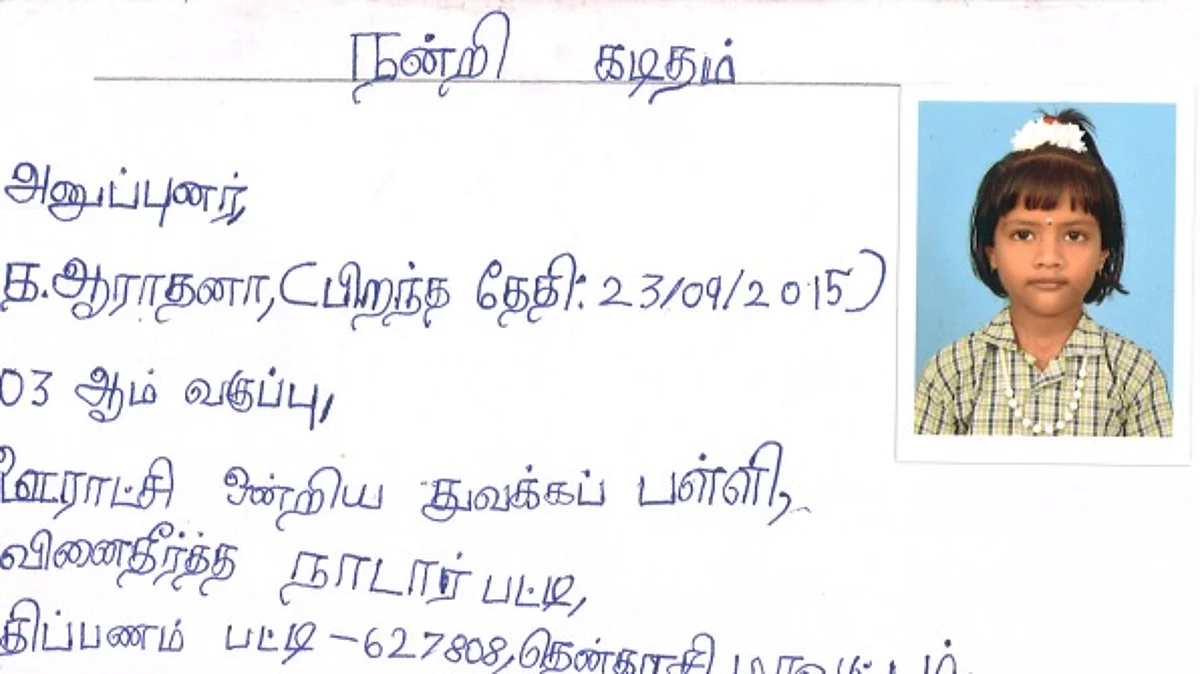 நன்றி கடிதம்
அனுப்புனர்,
க.ஆராதனா,(பிறந்த தேதி: 23/09/2015)
03 ஆம் வகுப்பு,
ஊராட்சி ஒன்றிய துவக்கப் பள்ளி,
வினைதீர்த்த நாடார் பட்டி,
திப்பணம் பட்டி -627808,தென்காசி மாவட்டம்.